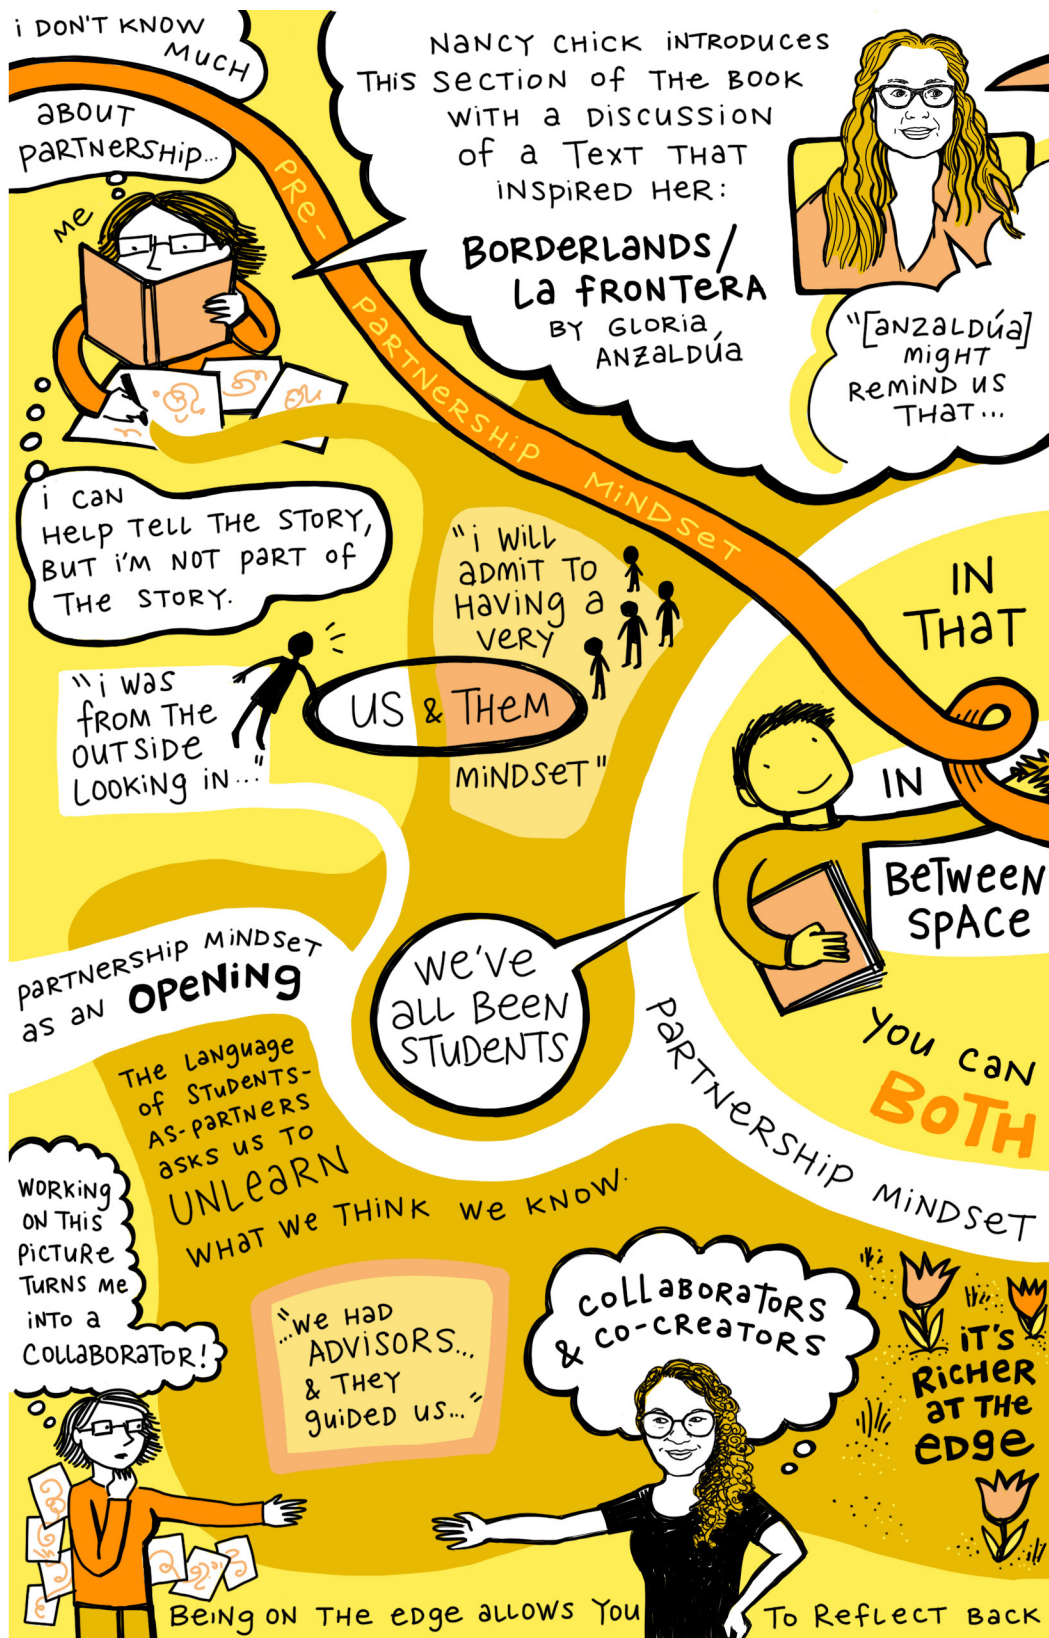 i DON'T KNOW
MUCH
aBOUT
PaRTNeRSHiP...
Me
NaNCY CHiCK iNTRODUCeS
THiS SeCTiON Of THe BOOK
WiTH a DiSCUSSiON
Of a TeXT THaT
iNSPiReD HeR:
BORDeRLaNDS/
La fRONTeRa
BY GLORia
aNZaLDúa
"[aNZaLDúa]
MigHT
ReMiND US
THaT...
PRe-
PaRTNeRSHiP MiNDSeT
i CaN
HeLP TeLL THe STORY,
BUT i'M NOT PaRT Of
THe STORY.
"i WaS
fROM THe
OUTSiDe
LOOKiNg iN..."
"i WiLL
aDMiT TO
HaViNg a
VeRY
US & THeM
MiNDSeT"
IN
THaT
IN
BeTWeeN
SPaCe
YOU CaN
BOTH
PaRTNeRSHiP MiNDSeT
aS aN OPeNiNg
We'Ve
aLL BeeN
STUDeNTS
PaRTNeRSHiP MiNDSeT
THe LaNgUage
Of STUDeNTS-
AS-PaRTNeRS
aSKS US TO
UNLeaRN
WHaT We THiNK We KNOW.
WORKiNg
ON THiS
PiCTURe
TURNS Me
iNTO a
COLLaBORaTOR!
"...We HaD
ADViSORS...
& THeY
gUiDeD US..."
COLLaBORaTORS
& CO-CReaTORS
iT'S
RiCHeR
aT THe
eDge
BeiNg ON THe eDge aLLOWS YOU TO ReFLeCT BaCK